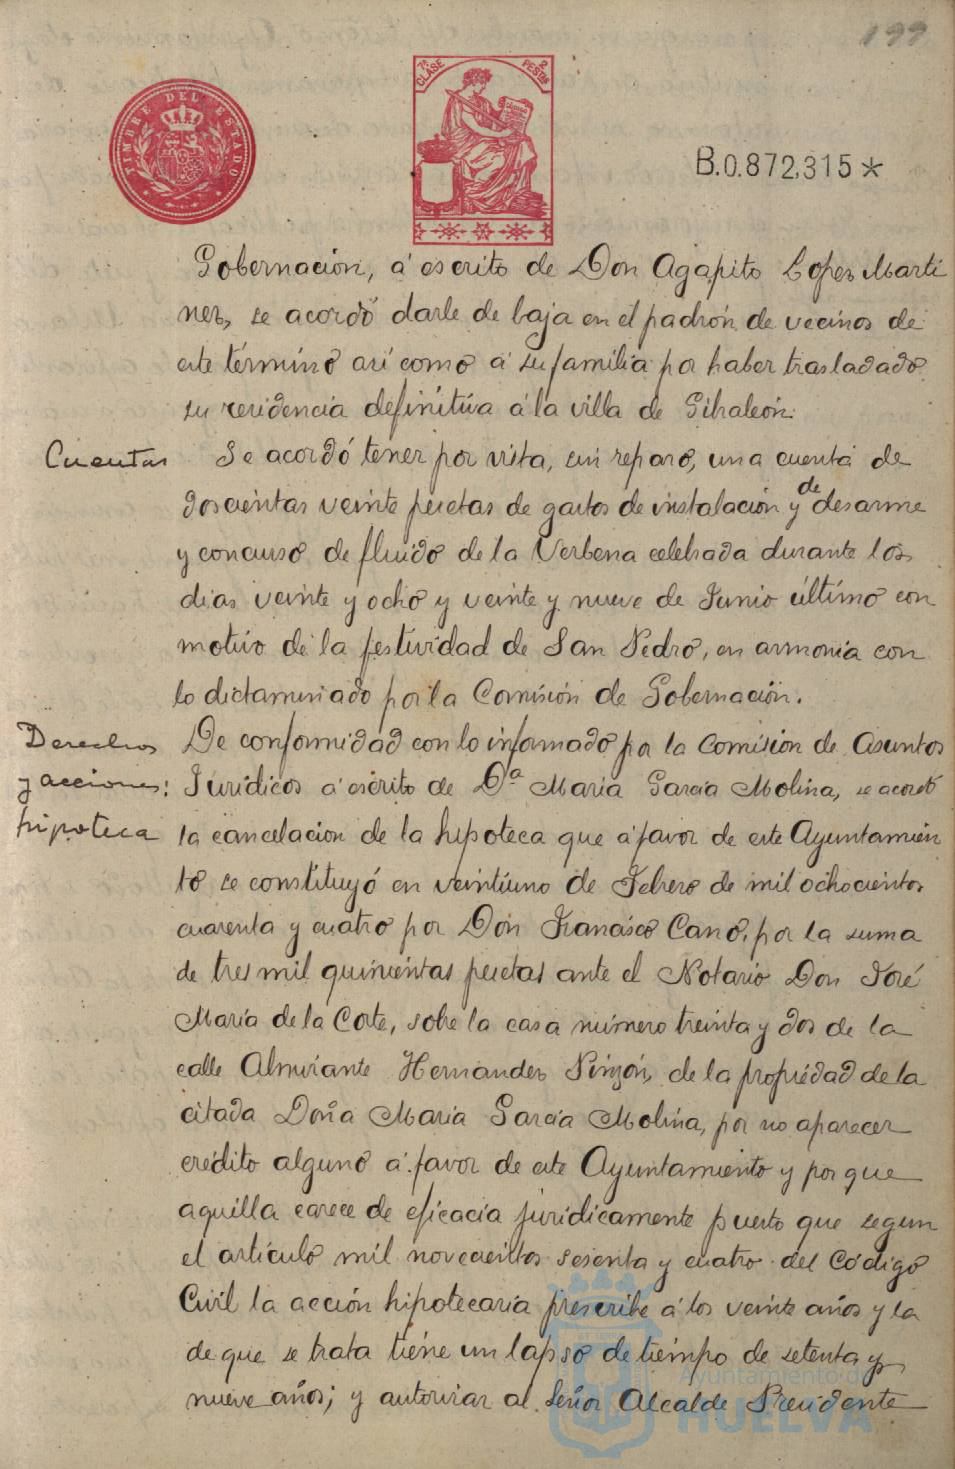 199
TIMBRE DEL ESTADO
7ª CLASE
2 PESTAS
B.0.872,315*
Gobernación, á escrito de Don Agapito Lopez Marti
nez, se acordó darle de baja en el padrón de vecinos de
este término así como á su familia por haber trasladado
su residencia definitiva á la villa de Gibraleón.
Cuentas
Se acordó tener por vista, sin reparo, una cuenta de
doscientas veinte pesetas de gastos de instalación y de desarme
y concurso de fluido de la Verbena celebrada durante los
dias veinte y ocho y veinte y nueve de Junio último con
motivo de la festividad de San Pedro, en armonía con
lo dictaminado por la Comisión de Gobernación.
Derechos
y acciones:
hipoteca
De conformidad con lo informado por la Comision de Asuntos
Jurídicos á escrito de Dª María García Molina, se acordó
la cancelacion de la hipoteca que á favor de este Ayuntamien
to se constituyó en veintiuno de Febrero de mil ochocientos
cuarenta y cuatro por Don Francisco Cano, por la suma
de tres mil quinientas pesetas ante el Notario Don José
María de la Corte, sobre la casa número treinta y dos de la
calle Almirante Hernandez Pinzón, de la propiedad de la
citada Doña María García Molina, por no aparecer
crédito alguno á favor de este Ayuntamiento y por que
aquilla carece de eficacia jurídicamente puesto que segun
el artículo mil novecientos sesenta y cuatro del Código
Civil la acción hipotecaria prescribe á los veinte años y la
de que se trata tiene un lapso de tiempo de setenta y
nueve años; y autorizar al Señor Alcalde Presidente
Ayuntamiento de
HUELVA